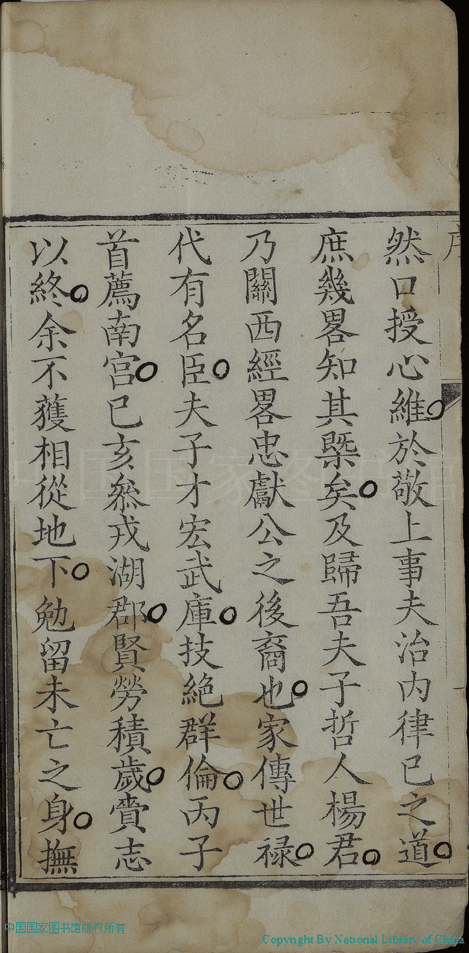 序
然口授心維於敬上事夫治内律已之道
庶幾畧知其槩矣及歸吾夫子哲人楊君
乃關西經畧忠獻公之後裔也家傳世禄
代有名臣夫子才宏武庫技絶群倫丙子
首薦南宫已亥叅戎湖郡賢勞積歲賫志
以終余不獲相從地下勉留未亡之身撫
中国国家图书馆
中国国家图书馆版权所有
Copyright By National Library of China